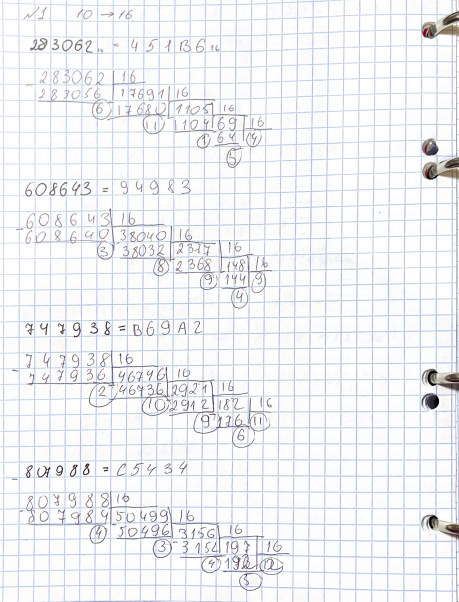 №1 10 → 16
283062₁₀ = 451B6₁₆
283062 | 16
283056 | 17691 | 16
6 17680 | 1105 | 16
11 1104 | 69 | 16
1 64 4
5
608643 = 94983
608643 | 16
608640 | 38040 | 16
3 38032 | 2377 | 16
8 2368 | 148 | 16
9 144 9
4
747938 = B69A2
747938 | 16
747936 | 46746 | 16
2 46736 | 2921 | 16
10 2912 | 182 | 16
9 176 11
6
807988 = C5434
807988 | 16
807984 | 50499 | 16
4 50496 | 3156 | 16
3 3152 | 197 | 16
4 192 12
5